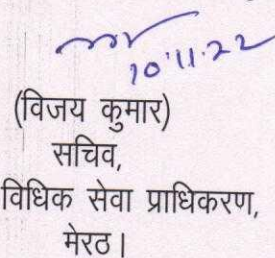 10.11.22
(विजय कुमार)
सचिव,
विधिक सेवा प्राधिकरण,
मेरठ।